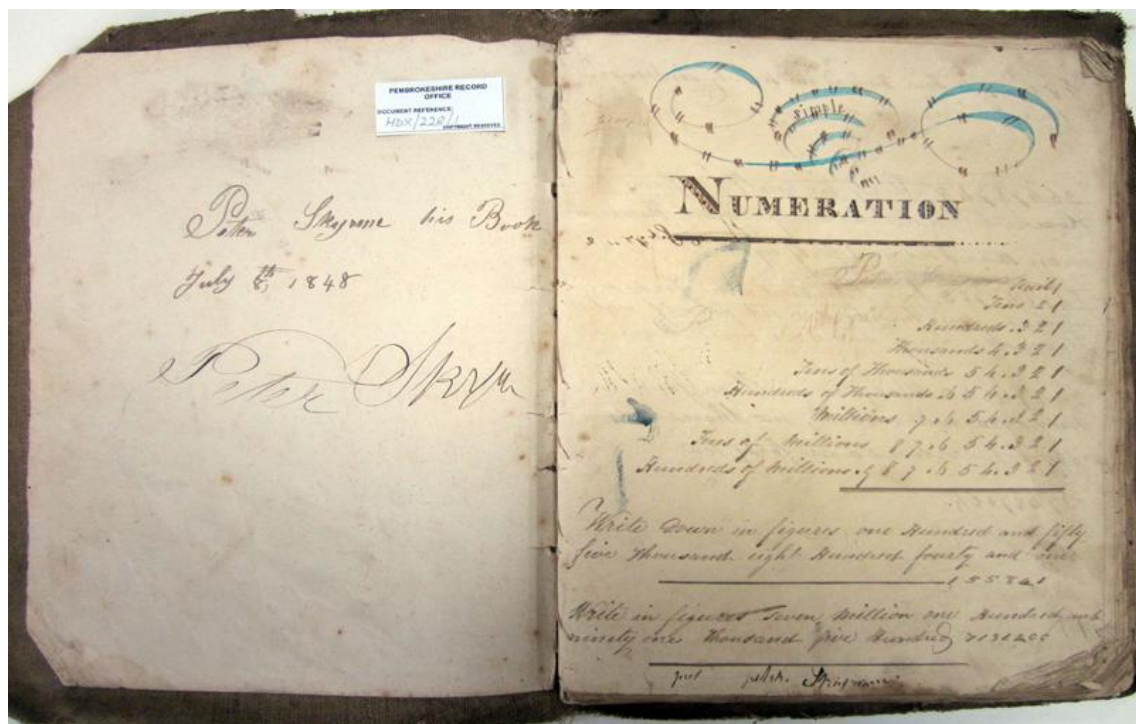 PEMBROKESHIRE RECORD
OFFICE
DOCUMENT REFERENCE:
HDX/228/1
COPYRIGHT RESERVED
Peter Skyrme his Book
July 8th, 1848
Peter Skyrm
simple
NUMERATION
Units 1
Tens 2 1
Hundreds . 3 2 1
Thousands 4 . 3 2 1
Tens of Thousands 5 4 . 3 2 1
Hundreds of Thousands . 6 5 4 . 3 2 1
Millions 7 . 6 5 4 . 3 2 1
Tens of Millions 8 7 . 6 5 4 . 3 2 1
Hundreds of Millions . 9 8 7 . 6 5 4 . 3 2 1
Write Down in figures one Hundred and fifty
five Thousand eight Hundred fourty and one
155841
Write in figures seven million one Hundred and
ninety one Thousand five Hundred
Skyrme